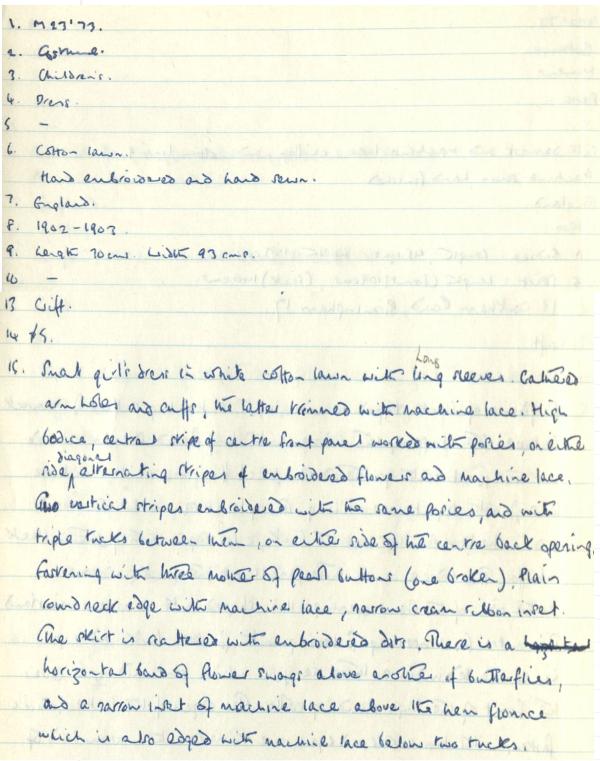 1. M23'73.
2. Costume.
3. Children's.
4. Dress.
5 -
6. Cotton lawn.
Hand embroidered and hand sewn.
7. England.
8. 1902-1903.
9. Length 70 cms. Width 93 cms.
10 -
13 Gift.
14 £5.
15. Small girl's dress in white cotton lawn with long sleeves. Gathered
Long
arm holes and cuffs, the latter trimmed with machine lace. High
bodice, central stripe of centre front panel worked with posies, on either
side, diagonal alternating stripes of embroidered flowers and machine lace.
Two vertical stripes embroidered with the same posies, and with
triple tucks between them, on either side of the centre back opening.
Fastening with three mother of pearl buttons (one broken). Plain
round neck edge with machine lace, narrow cream ribbon inset.
The skirt is scattered with embroidered dots. There is a
horizontal band of flower swags above another of butterflies,
and a narrow inset of machine lace above the hem flounce
which is also edged with machine lace below two tucks.